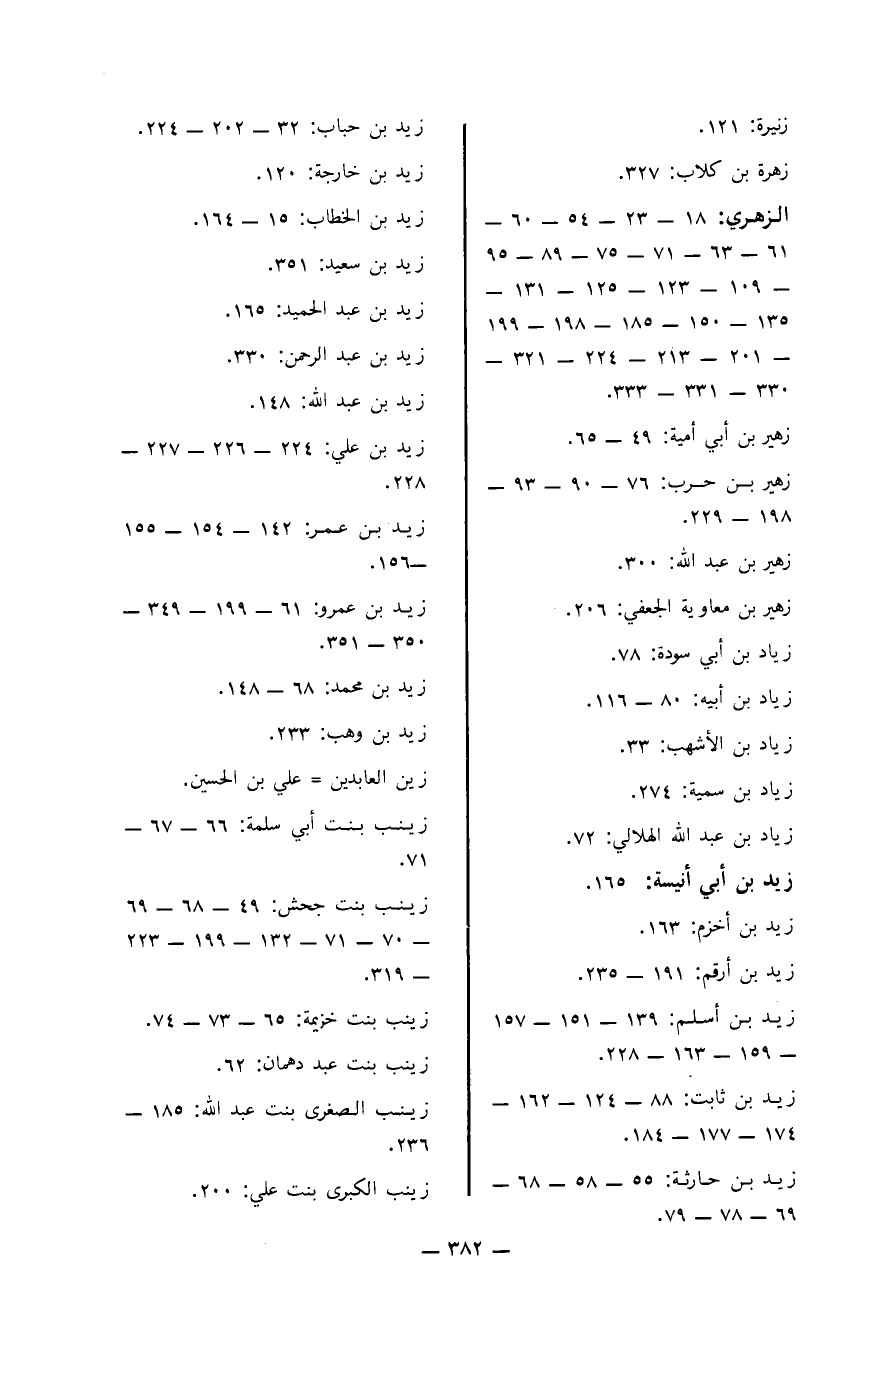 زنيرة: ١٢١.
زهرة بن كلاب: ٣٢٧.
الزهري: ١٨ — ٢٣ — ٥٤ — ٦٠ —
٦١ — ٦٣ — ٧١ — ٧٥ — ٨٩ — ٩٥
— ١٠٩ — ١٢٣ — ١٢٥ — ١٣١ —
١٣٥ — ١٥٠ — ١٨٥ — ١٩٨ — ١٩٩
— ٢٠١ — ٢١٣ — ٢٢٤ — ٣٢١ —
٣٣٠ — ٣٣١ — ٣٣٣.
زهير بن أبي أمية: ٤٩ — ٦٥.
زهير بن حرب: ٧٦ — ٩٠ — ٩٣ —
١٩٨ — ٢٢٩.
زهير بن عبد الله: ٣٠٠.
زهير بن معاوية الجعفي: ٢٠٦.
زياد بن أبي سودة: ٧٨.
زياد بن أبيه: ٨٠ — ١١٦.
زياد بن الأشهب: ٣٣.
زياد بن سمية: ٢٧٤.
زياد بن عبد الله الهلالي: ٧٢.
زيد بن أبي أنيسة: ١٦٥.
زيد بن أخزم: ١٦٣.
زيد بن أرقم: ١٩١ — ٢٣٥.
زيد بن أسلم: ١٣٩ — ١٥١ — ١٥٧
— ١٥٩ — ١٦٣ — ٢٢٨.
زيد بن ثابت: ٨٨ — ١٢٤ — ١٦٢ —
١٧٤ — ١٧٧ — ١٨٤.
زيد بن حارثة: ٥٥ — ٥٨ — ٦٨ —
٦٩ — ٧٨ — ٧٩.
زيد بن حباب: ٣٢ — ٢٠٢ — ٢٢٤.
زيد بن خارجة: ١٢٠.
زيد بن الخطاب: ١٥ — ١٦٤.
زيد بن سعيد: ٣٥١.
زيد بن عبد الحميد: ١٦٥.
زيد بن عبد الرحمن: ٣٣٠.
زيد بن عبد الله: ١٤٨.
زيد بن علي: ٢٢٤ — ٢٢٦ — ٢٢٧ —
٢٢٨.
زيد بن عمر: ١٤٢ — ١٥٤ — ١٥٥
—١٥٦.
زيد بن عمرو: ٦١ — ١٩٩ — ٣٤٩ —
٣٥٠ — ٣٥١.
زيد بن محمد: ٦٨ — ١٤٨.
زيد بن وهب: ٢٣٣.
زين العابدين = علي بن الحسين.
زينب بنت أبي سلمة: ٦٦ — ٦٧ —
٧١.
زينب بنت جحش: ٤٩ — ٦٨ — ٦٩
— ٧٠ — ٧١ — ١٣٢ — ١٩٩ — ٢٢٣
— ٣١٩.
زينب بنت خزيمة: ٦٥ — ٧٣ — ٧٤.
زينب بنت عبد دهمان: ٦٢.
زينب الصغرى بنت عبد الله: ١٨٥ —
٢٣٦.
زينب الكبرى بنت علي: ٢٠٠.
— ٣٨٢ —